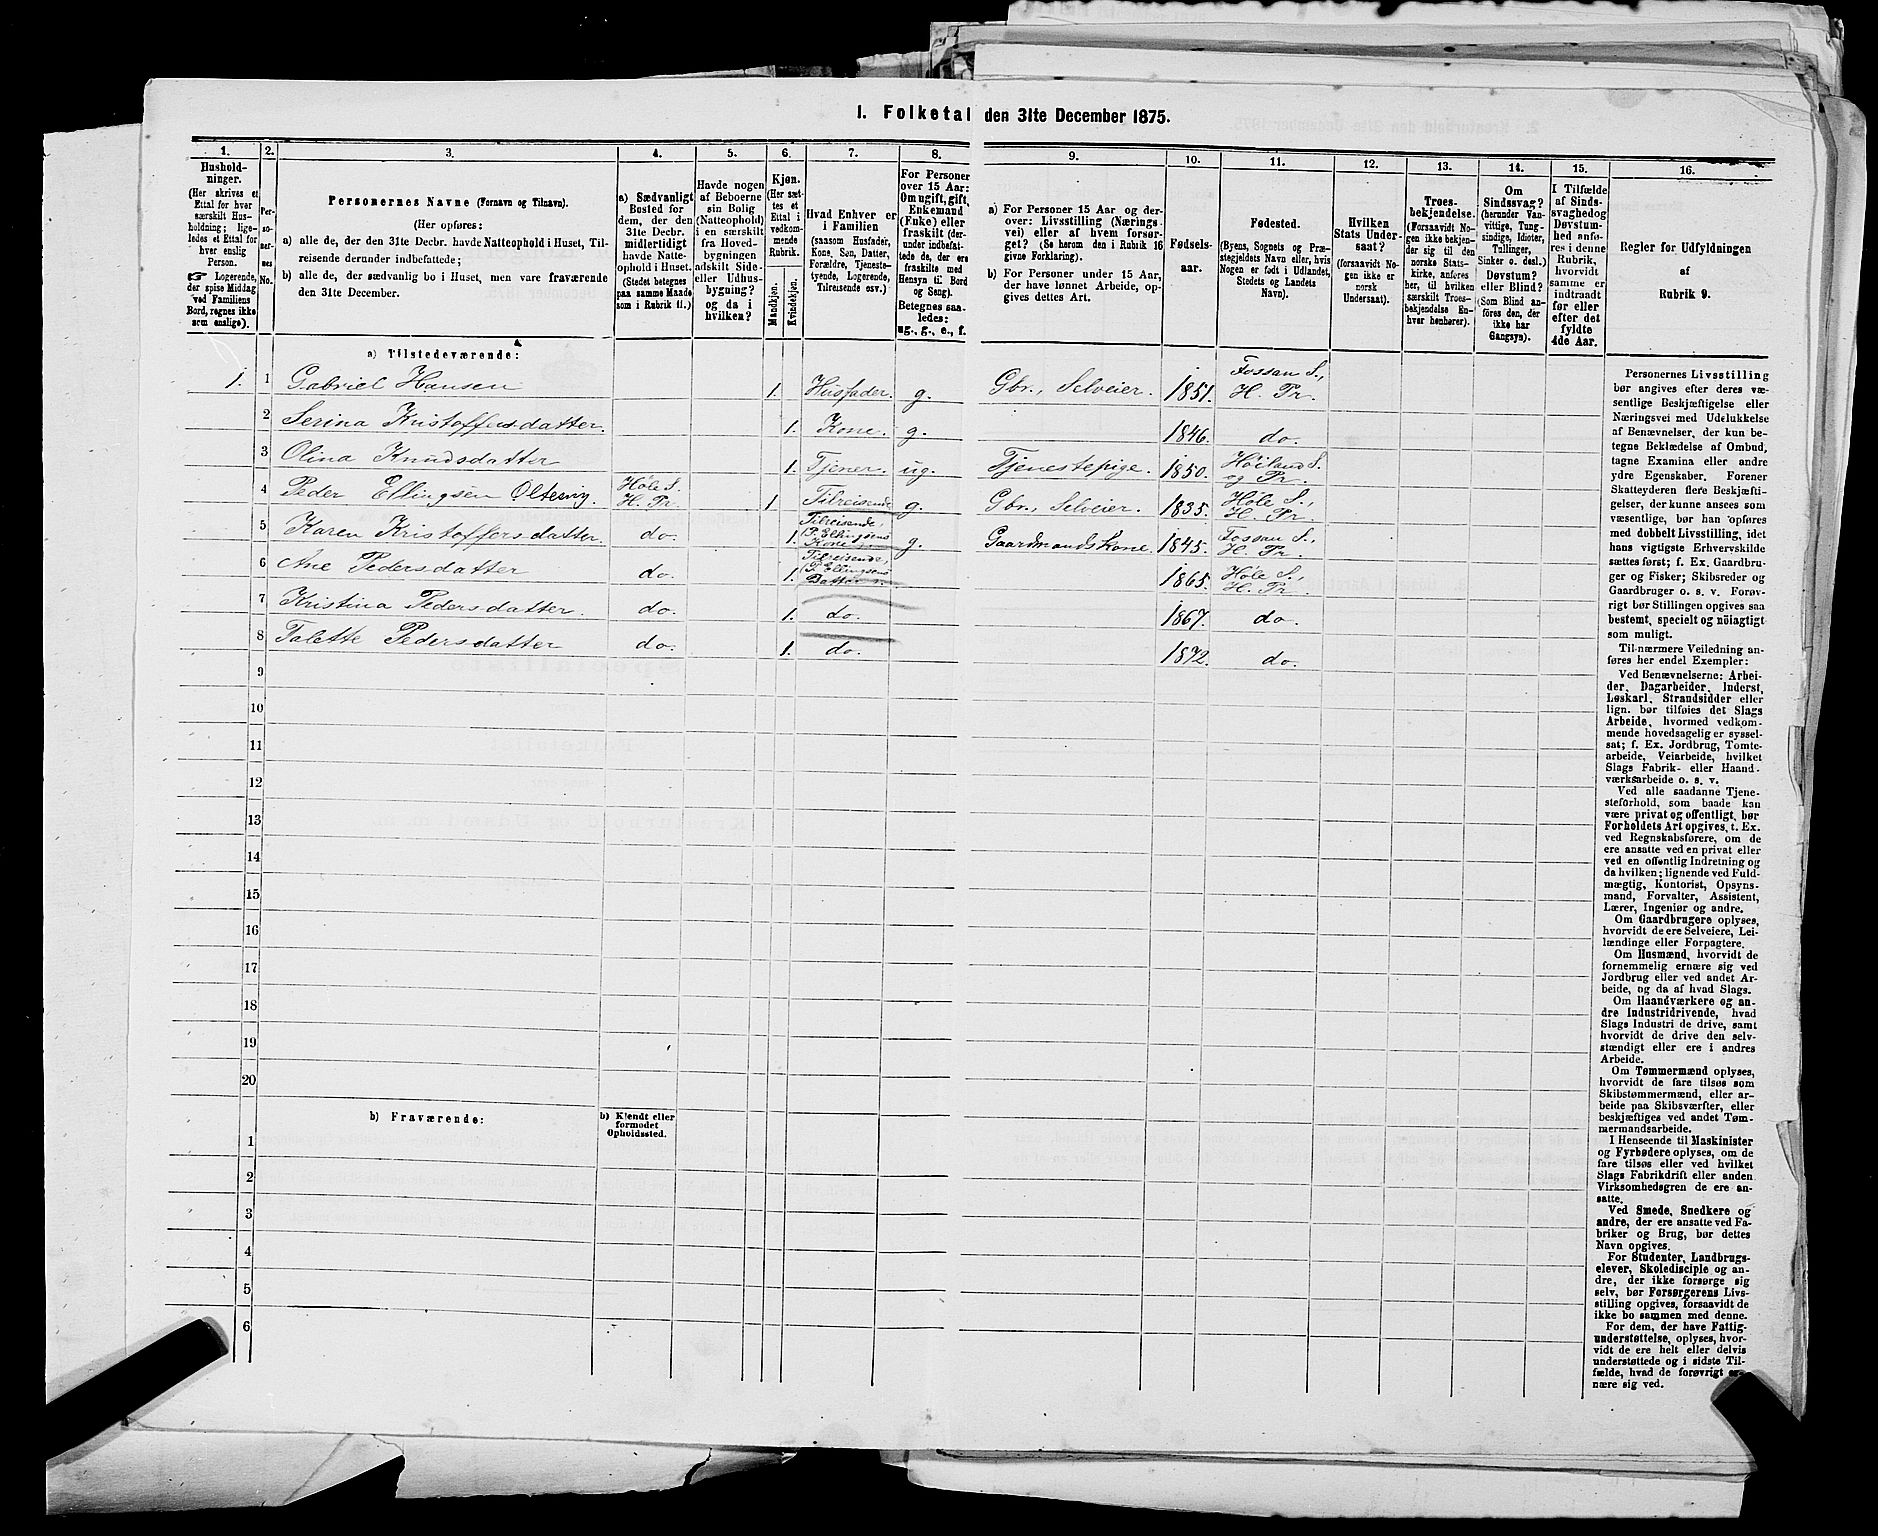 1. Folketal den 31te December 1875.
1. 2. 3. 4. 5. 6. 7. 8. 9. 10. 11. 12. 13. 14. 15. 16.
Husholdninger.
(Her skrives et
Ettal for hver
særskilt Husholdning;
ligeledes et Ettal for
hver enslig
Person.
☞ Logerende,
der spise Middag
ved Familiens
Bord, regnes ikke
som enslige).
Personernes
No.
Personernes Navne (Fornavn og Tilnavn).
(Her opføres:
a) alle de, der den 31te Decbr. havde Natteophold i Huset, Tilreisende
derunder indbefattede;
b) alle de, der sædvanlig bo i Huset, men vare fraværende
den 31te December.
a) Sædvanligt
Bosted for
dem, der den
31te Decbr.
midlertidigt
havde Natteophold
i Huset.
(Stedet betegnes
paa samme Maade
som i Rubrik 11.)
Havde nogen
af Beboerne
sin Bolig
(Natteophold)
i en særskilt
fra Hovedbygningen
adskilt Side-
eller Udhusbygning?
og da i
hvilken?
Kjøn.
(Her sættes
et
Ettal i
vedkommende
Rubrik.
Mandkjøn.
Kvindekjøn.
Hvad Enhver er
i Familien
(saasom Husfader,
Kone, Søn, Datter,
Forældre, Tjenestetyende,
Logerende,
Tilreisende osv.)
For Personer
over 15 Aar:
Om ugift, gift,
Enkemand
(Enke) eller
fraskilt (derunder
indbefattede
de, der ere
fraskilte med
Hensyn til Bord
og Seng).
Betegnes saaledes:
ug., g., e., f.
a) For Personer 15 Aar og derover:
Livsstilling (Næringsvei)
eller af hvem forsørget?
(Se herom den i Rubrik 16
givne Forklaring).
b) For Personer under 15 Aar,
der have lønnet Arbeide, opgives
dettes Art.
Fødselsaar.
Fødested.
(Byens, Sognets og Præstegjeldets
Navn eller, hvis
Nogen er født i Udlandet,
Stedets og Landets
Navn).
Hvilken
Stats Undersaat?
(forsaavidt Nogen
ikke er
norsk
Undersaat).
Troesbekjendelse.
(Forsaavidt Nogen
ikke bekjender
sig til den
norske Statskirke,
anføres
her, til hvilken
særskilt Troesbekjendelse
Enhver
henhører).
Om
Sindssvag?
(herunder Vanvittige,
Tungsindige,
Idioter,
Tullinger,
Sinker o. desl.)
Døvstum?
eller Blind?
(Som Blind anføres
den, der
ikke har
Gangsyn).
I Tilfælde
af Sindssvaghed
og
Døvstumhed
anføres
i denne
Rubrik,
hvorvidt
samme er
indtraadt
før eller
efter det
fyldte
4de Aar.
Regler for Udfyldningen
af
Rubrik 9.
a) Tilstedeværende:
1. 1 Gabriel Hansen 1. Husfader. g. Gbr., Selveier. 1851. Fossan S., H. Pr.
2 Serina Kristoffersdatter. 1. Kone. g. 1846. do.
3 Olina Knudsdatter 1. Tjener. ug. Tjenestepige. 1850. Høiland S. og Pr.
4 Peder Ellingsen Høle S. H. Pr. 1 Tilreisende g. Gbr., Selveier. 1835. Høle S., H. Pr.
5 Karen Kristoffersdatter. do. 1. Tilreisende, P. Ellingsens Kone g. Gaardmandskone. 1845. Fossan S., H. Pr.
6 Ane Pedersdatter do. 1. Tilreisende, P. Ellingsens Datter 1865. Høle S., H. Pr.
7 Kristina Pedersdatter. do. 1. do. 1867. do.
8 Talette Pedersdatter do. 1. do. 1872. do.
9
10
11
12
13
14
15
16
17
18
19
20
b) Fraværende: b) Kjendt eller
formodet
Opholdssted.
1
2
3
4
5
6
Personernes Livsstilling
bør angives efter deres væsentlige
Beskjæftigelse eller
Næringsvei med Udelukkelse
af Benævnelser, der kun betegne
Beklædelse af Ombud,
tagne Examina eller andre
ydre Egenskaber. Forener
Skatteyderen flere Beskjæftigelser,
der kunne ansees som
væsentlige, bør han opføres
med dobbelt Livsstilling, idet
hans vigtigste Erhvervskilde
sættes først; f. Ex. Gaardbruger
og Fisker; Skibsreder og
Gaardbruger o. s. v. Forøvrigt
bør Stillingen opgives saa
bestemt, specielt og nöiagtigt
som muligt.
Til nærmere Veiledning anføres
her endel Exempler:
Ved Benævnelserne: Arbeider,
Dagarbeider, Inderst,
Løskarl, Strandsidder eller
lign. bør tilføies det Slags
Arbeide, hvormed vedkommende
hovedsagelig er sysselsat;
f. Ex. Jordbrug, Tomtearbeide,
Veiarbeide, hvilket
Slags Fabrik- eller Haandværksarbeide
o. s. v.
Ved alle saadanne Tjenesteforhold,
som baade kan
være privat og offentligt, bør
Forholdets Art opgives, t. Ex.
ved Regnskabsførere, om de
ere ansatte ved en privat eller
ved en offentlig Indretning og
da hvilken; lignende ved Fuldmægtig,
Kontorist, Opsynsmand,
Forvalter, Assistent,
Lærer, Ingeniør og andre.
Om Gaardbrugere oplyses,
hvorvidt de ere Selveiere, Leilændinge
eller Forpagtere.
Om Husmænd, hvorvidt de
fornemmelig ernære sig ved
Jordbrug eller ved andet Arbeide,
og da af hvad Slags.
Om Haandværkere og andre
Industridrivende, hvad
Slags Industri de drive, samt
hvorvidt de drive den selvstændigt
eller ere i andres
Arbeide.
Om Tømmermænd oplyses,
hvorvidt de fare tilsøs som
Skibstømmermænd, eller arbeide
paa Skibsværfter, eller
beskjæftiges ved andet Tømmermandsarbeide.
I Henseende til Maskinister
og Fyrbødere oplyses, om de
fare tilsøs eller ved hvilket
Slags Fabrikdrift eller anden
Virksomhedsgren de ere ansatte.
Ved Smede, Snedkere og
andre, der ere ansatte ved Fabriker
og Brug, bør dettes
Navn opgives.
For Studenter, Landbrugselever,
Skoledisciple og andre,
der ikke forsørge sig
selv, bør Forsørgerens Livsstilling
opgives, forsaavidt de
ikke bo sammen med denne.
For dem, der have Fattigunderstøttelse,
oplyses, hvorvidt
de ere helt eller delvis
understøttede og i sidste Tilfælde,
hvad de forøvrigt ernære
sig ved.